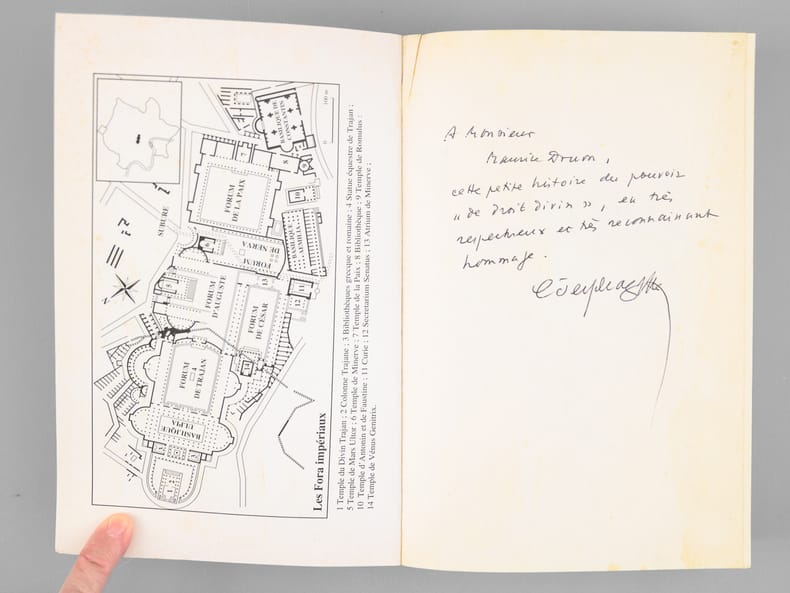 100 m
0
BASILIQUE DE
CONSTANTIN
7
8
9
FORUM
DE LA PAIX
10
BASILIQUE
AEMILIA
SUBURE
6
FORUM
DE NERVA
5
FORUM
D'AUGUSTE
13
11
12
FORUM
DE CÉSAR
14
FORUM
4
DE TRAJAN
BASILIQUE
ULPIA
3
2
1
Les Fora impériaux
1 Temple du Divin Trajan ; 2 Colonne Trajane ; 3 Bibliothèques grecque et romaine ; 4 Statue équestre de Trajan ;
5 Temple de Mars Ultor ; 6 Temple de Minerve ; 7 Temple de la Paix ; 8 Bibliothèque ; 9 Temple de Romulus ;
10 Temple d'Antonin et de Faustine ; 11 Curie ; 12 Secretarium Senatus ; 13 Atrium de Minerve ;
14 Temple de Vénus Genitrix.
A Monsieur
Maurice Druon,
cette petite histoire du pouvoir
« de droit divin », en très
respectueux et très reconnaissant
hommage.